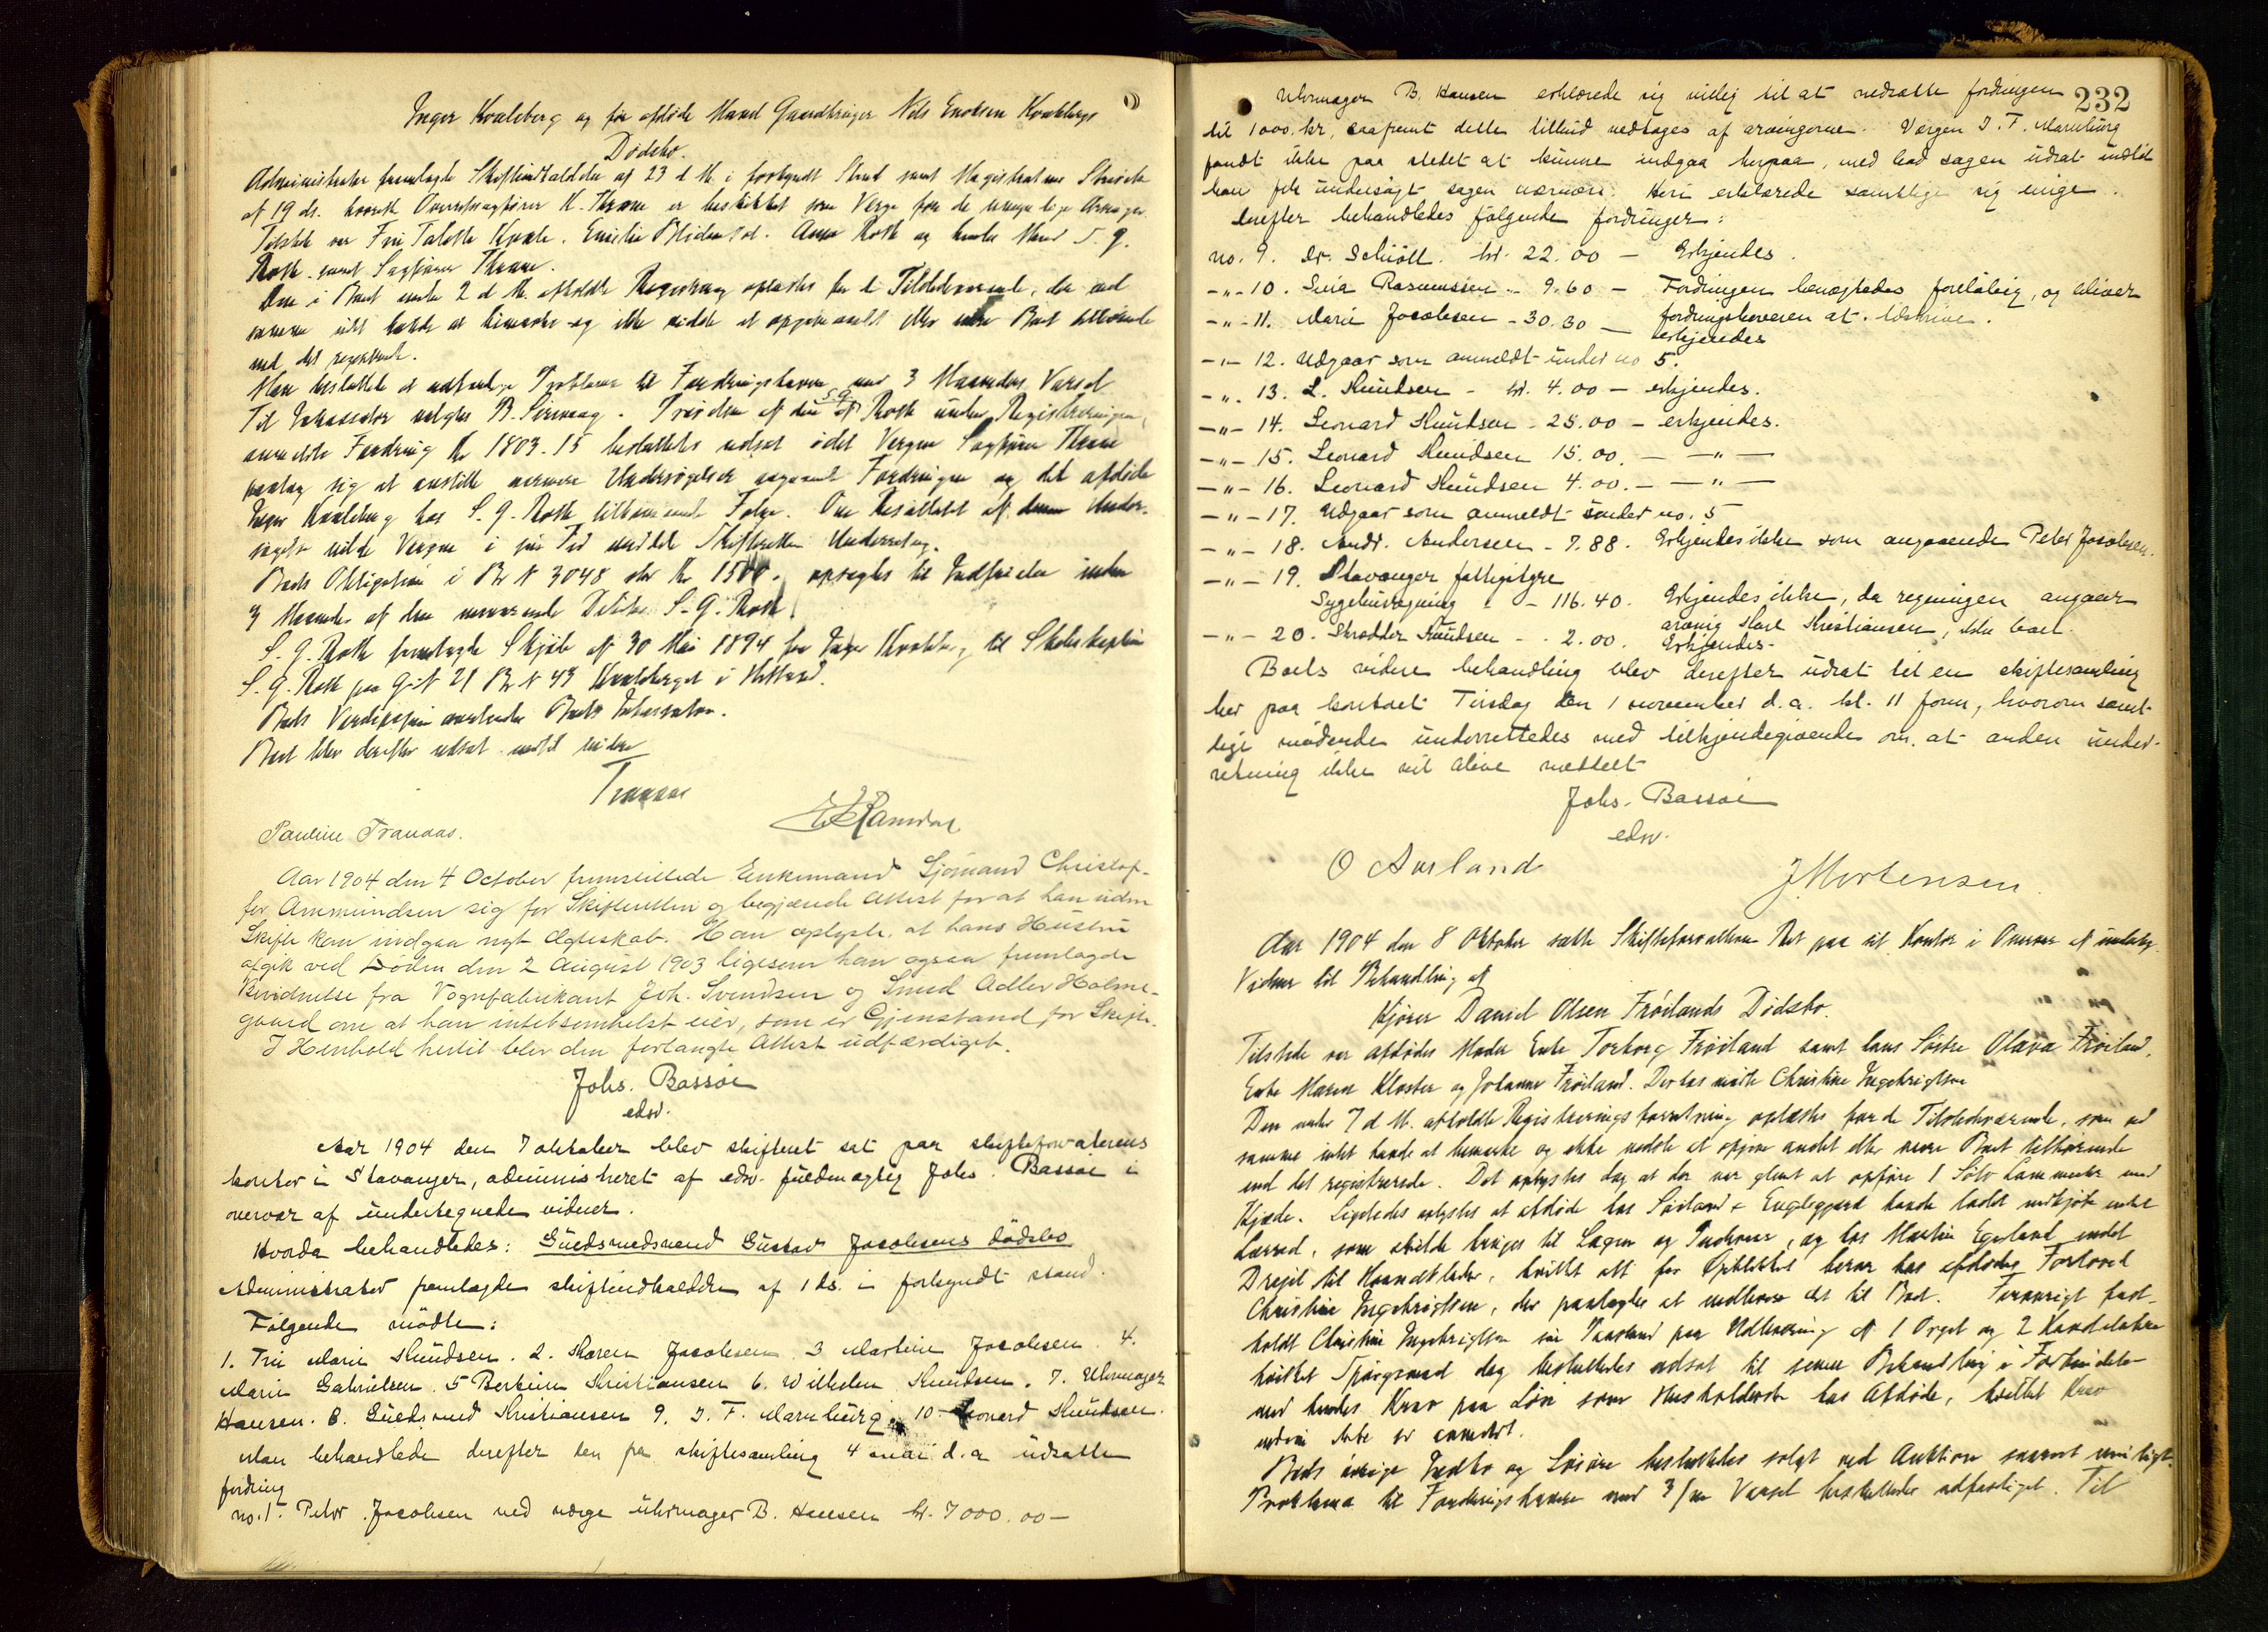 Inger Kvaleberg og før afdøde Mand Gaardbruger Nils Enoksen Kvalebergs
Dødsbo.
Administrator fremlagde Skifteindkaldelse af 23 d M. i forkyndt Stand samt Magistratens Skrivelse
af 19 ds. hvorved Overretssagfører K. Thrane er beskikket som Verge for de umyndige Arvinger.
Tilstede var Fru Talette Kvale. Emilie Anna Roth og hendes Mand S. G.
Roth samt Sagfører Thrane.
Den i Boet under 2 d M. afholdte Registrering oplæstes for de Tilstedeværende, der ved
samme intet havde at bemærke og ikke vidste at opgive andet eller mere Boet tilhørende
end det registrerede.
Man besluttede at udfærdige Proklama til Fordringshavere med 3 Maaneders Varsel
Til Inkassator valgtes B. Prøvelse af den af S. G. Roth under Registreringen
anmeldte Fordring Kr 1803.15 besluttedes udsat idet Vergen Sagfører Thrane
paatog sig at anstille nærmere Undersøgelser angaaende Fordringen og det afdøde
Inger Kvaleberg hos S. G. Roth tilkommende Følge. Om Resultatet af denne Under-
søgelse vilde Vergen i sin Tid meddele Skifteretten Underretning.
Boets Obligation i Br N 3048 stor Kr 1500. opsagdes til Indfrielse inden
3 Maaneder af den nærværende Debitor S. G. Roth.
S. G. Roth fremlagde Skjøte af 30 Mai 1894 fra Inger Kvaleberg til Skibskaptein
S. G. Roth paa G. N 21 Br N 43 Kvaleberget i Hetland.
Boets Verdipapirer Boets Inkassator.
Boet blev derefter udsat indtil videre
Tranaas
Pauline Tranaas.
Aar 1904 den 4 October fremstillede Enkemand Sjømand Christof-
fer Ammundsen sig for Skifteretten og begjærede Attest for at han uden
Skifte kan indgaa nyt Ægteskab. Han oplyste, at hans Hustru
afgik ved Døden den 2 August 1903 ligesom han ogsaa fremlagde
Bevidnelse fra Vognfabrikant Joh. Svendsen og Smed Adler Holme-
gaard om at han intetsomhelst eier, som er Gjenstand for Skifte.
I Henhold hertil blev den forlangte Attest udfærdiget.
Johs. Bassøe
edsv.
Aar 1904 den 7 oktober blev skifteret sat paa skifteforvalterens
kontor i Stavanger, administreret af edsv. fuldmægtig Johs. Bassøe i
overvær af undertegnede vidner.
Hvorda behandledes: Guldsmedsvend Gustav Jacobsens dødsbo
Administrator fremlagde skifteindkaldelse af 1 ds. i forkyndt stand.
Følgende mødte:
1. Fru Marie Knudsen. 2. Karen Jacobsen. 3 Martine Jacobsen 4.
Marie Gabrielsen. 5 Bertine Kristiansen 6. Wilhelm Knudsen. 7. Uhrmager
Hansen. 8. Guldsmed Kristiansen 9. J. F. Marnburg. 10 Leonard Knudsen.
Man behandlede derefter den paa skiftesamling 4 mai d.a udsatte
fordring
no. 1. Peter Jacobsen ved verge uhrmager B. Hansen kr. 7000.00 —
232
Uhrmager B. Hansen erklærede sig villig til at nedsætte fordringen
til 1000. kr, saafremt dette tilbud vedtages af arvingerne. Vergen J. F. Marnburg
fandt ikke paa stedet at kunne indgaa herpaa, med bad sagen udsat indtil
han fik undersøgt sagen nærmere. Heri erklærede samtlige sig enige.
Derefter behandledes følgende fordringer:
no. 9. Dr. Schiøtt. kr. 22.00 — Erkjendes.
-"- 10. Lina Rasmussen - 9.60 — Fordringen benægtedes foreløbig, og bliver
fordringshaveren at tilskrive.
-"- 11. Marie Jacobsen - 30.30 — erkjendes
-"- 12. Udgaar som anmeldt under no 5.
-"- 13. L. Knudsen - kr. 4.00 — erkjendes.
-"- 14. Leonard Knudsen - 25.00 — erkjendes.
-"- 15. Leonard Knudsen 15.00. — -"-
-"- 16. Leonard Knudsen 4.00. — -"-
-"- 17. Udgaar som anmeldt under no. 5
-"- 18. Andr. Andersen - 7.88. Erkjendes ikke som angaaende Peter Jacobsen.
-"- 19. Stavanger fattigstyre
Sygehusregning - 116.40. Erkjendes ikke, da regningen angaar
arving Karl Kristiansen, ikke boet.
-"- 20. Skrædder Knudsen - 2.00. Erkjendes.
Boets videre behandling blev derefter udsat til en skiftesamling
her paa kontoret Tirsdag den 1 november d.a. kl. 11 form, hvorom samt-
lige mødende underrettedes med tilkjendegivende om, at anden under-
retning ikke vil blive meddelt
Johs. Bassøe
edsv.
O Aarland
J. Mortensen.
Aar 1904 den 8 Oktober satte Skifteforvalteren Ret paa sit Kontor i Overvær af undertegn.
Vidner til Behandling af
Kjører Daniel Olsen Frøilands Dødsbo.
Tilstede var afdødes Moder Enke Torborg Frøiland samt hans Søstre Olava Frøiland,
Enke Maren Kloster og Johanne Frøiland. Derhos mødte Christine Ingebrigtsen
Den under 7 d M. afholdte Registreringsforretning oplæstes for de Tilstedeværende, som ved
samme intet havde at bemærke og ikke vidste at opgive andet eller mere Boet tilhørende
end det registrerede. Det oplystes dog at der var glemt at opføre 1 Sølv Lommeuhr med
Kjæde. Ligeledes oplystes at afdøde hos Sørland & Englegaard havde ladet indkjøbe endel
Lærred, som skulde bruges til Lagen og Pudevar, og hos Martin Egeland endel
Dreiel til Haandklæder, hvilket alt for Øieblikket beror hos afdødes Forlovede
Christine Ingebrigtsen, der paalagdes at indlevere det til Boet. Forøvrigt fast-
holdt Christine Ingebrigtsen sin Paastand paa Udlevering af 1 Orgel og 2 Kandelabre
hvilket Spørgsmaal dog besluttedes udsat til senere Behandling i Forbindelse
med hendes Krav paa Løn som Husholderske hos Afdøde, hvilket Krav
endnu ikke er anmeldt.
Boets øvrige Indbo og Løsøre besluttedes solgt ved Auktion snarest muligt.
Proklama til Fordringshavere med 3/m Varsel besluttedes udfærdiget. Til